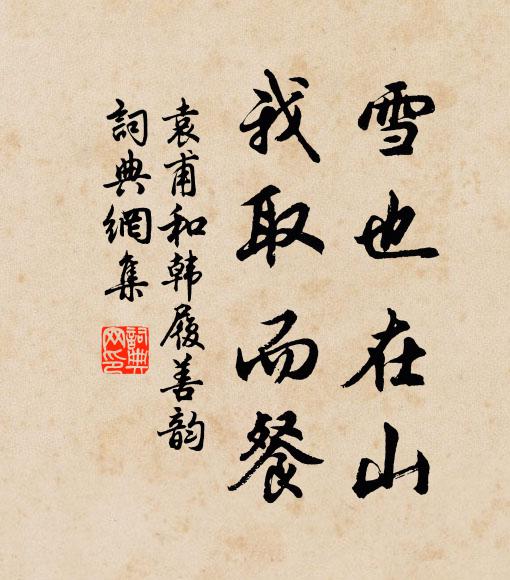 雪也在山
我取而餐
袁甫和韩履善韵
詞典網集
詞典
网印